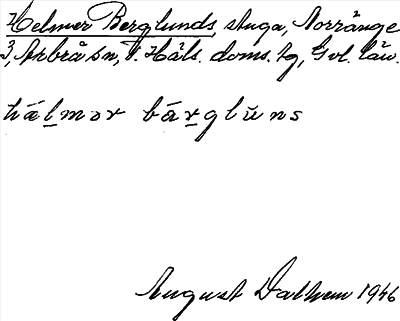 Helmer Berglunds, stuga, Norränge
3, Arbrå sn, V. Häls. doms. tg, Gvl. län.
hǽlmər bárglŭns
August Dalhem 1946